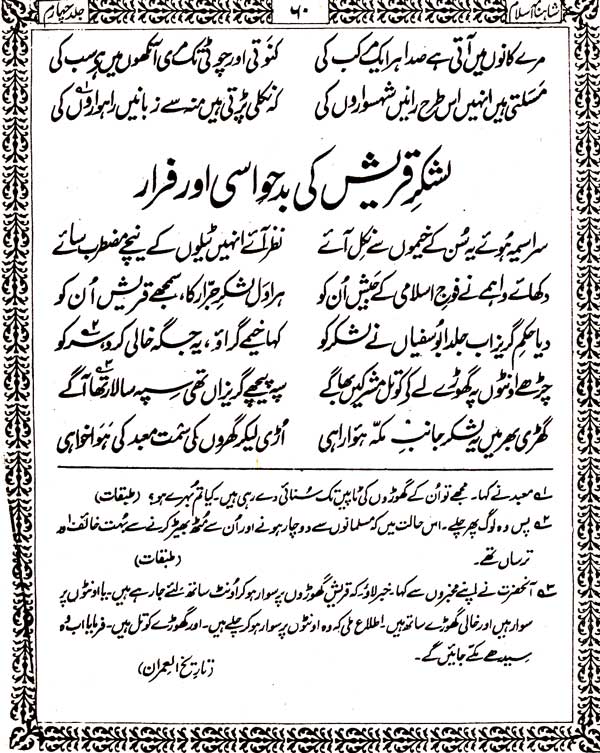 شاہنامۂ اسلام ۶۰ جلد چہارم
مرے کانوں میں آتی ہے صدا ہر ایک مرکب کی کنوتی اور چوٹی تک مری آنکھوں میں ہر سب کی
مسکتی ہیں انہیں اس طرح رانیں شہسواروں کی کہ نکلی پڑتی ہیں منہ سے زبانیں راہواروں کی ؎۱
لشکرِ قریش کی بدحواسی اور فرار
سراسیمہ ہوئے یہ سُن کے خیموں سے نکل آئے نظر آئے انہیں ٹیلوں کے نیچے مضطرب سائے
دکھائے واہمے نے فوجِ اسلامی کے جَیش اُن کو ہراول لشکرِ جرّار کا، سمجھے قریش اُن کو
دیا حکمِ گریز اب جلد ابوسفیاں نے لشکر کو کہا خیمے گراؤ، یہ جگہ خالی کرو سرکو ؎۲
چڑھے اونٹوں پہ گھوڑے لے کے کوتل مشرکیں بھاگے سپہ پیچھے گریزاں تھی سپہ سالار تھا آگے ؎۳
گھڑی بھر میں یہ لشکر جانبِ مکّہ ہوا راہی اُڑی لیکر گھروں کی سمت معبد کی ہوا خواہی
؎۱ معبد نے کہا۔ مجھے تو اُن کے گھوڑوں کی ٹاپیں تک سنائی دے رہی ہیں۔ کیا تم بہرے ہو؟ (طبقات)
؎۲ پس وہ لوگ پھر چلے۔ اس حالت میں کہ مسلمانوں سے دوچار ہونے اور اُن سے مُٹھ بھیڑ کرنے سے بہت خائف اور
ترساں تھے۔ (طبقات)
؎۳ آنحضرت نے اپنے مخبروں سے کہا۔ خبر لاؤ۔ کہ قریش گھوڑوں پر سوار ہو کر اونٹ ساتھ لئے جا رہے ہیں۔ یا اونٹوں پر
سوار ہیں اور خالی گھوڑے ساتھ ہیں۔ اطلاع ملی کہ وہ اونٹوں پر سوار ہو کر چلے ہیں۔ اور گھوڑے کوتل ہیں۔ فرمایا اب وُہ
سیدھے مکّے جائیں گے۔ (تاریخ العمران)